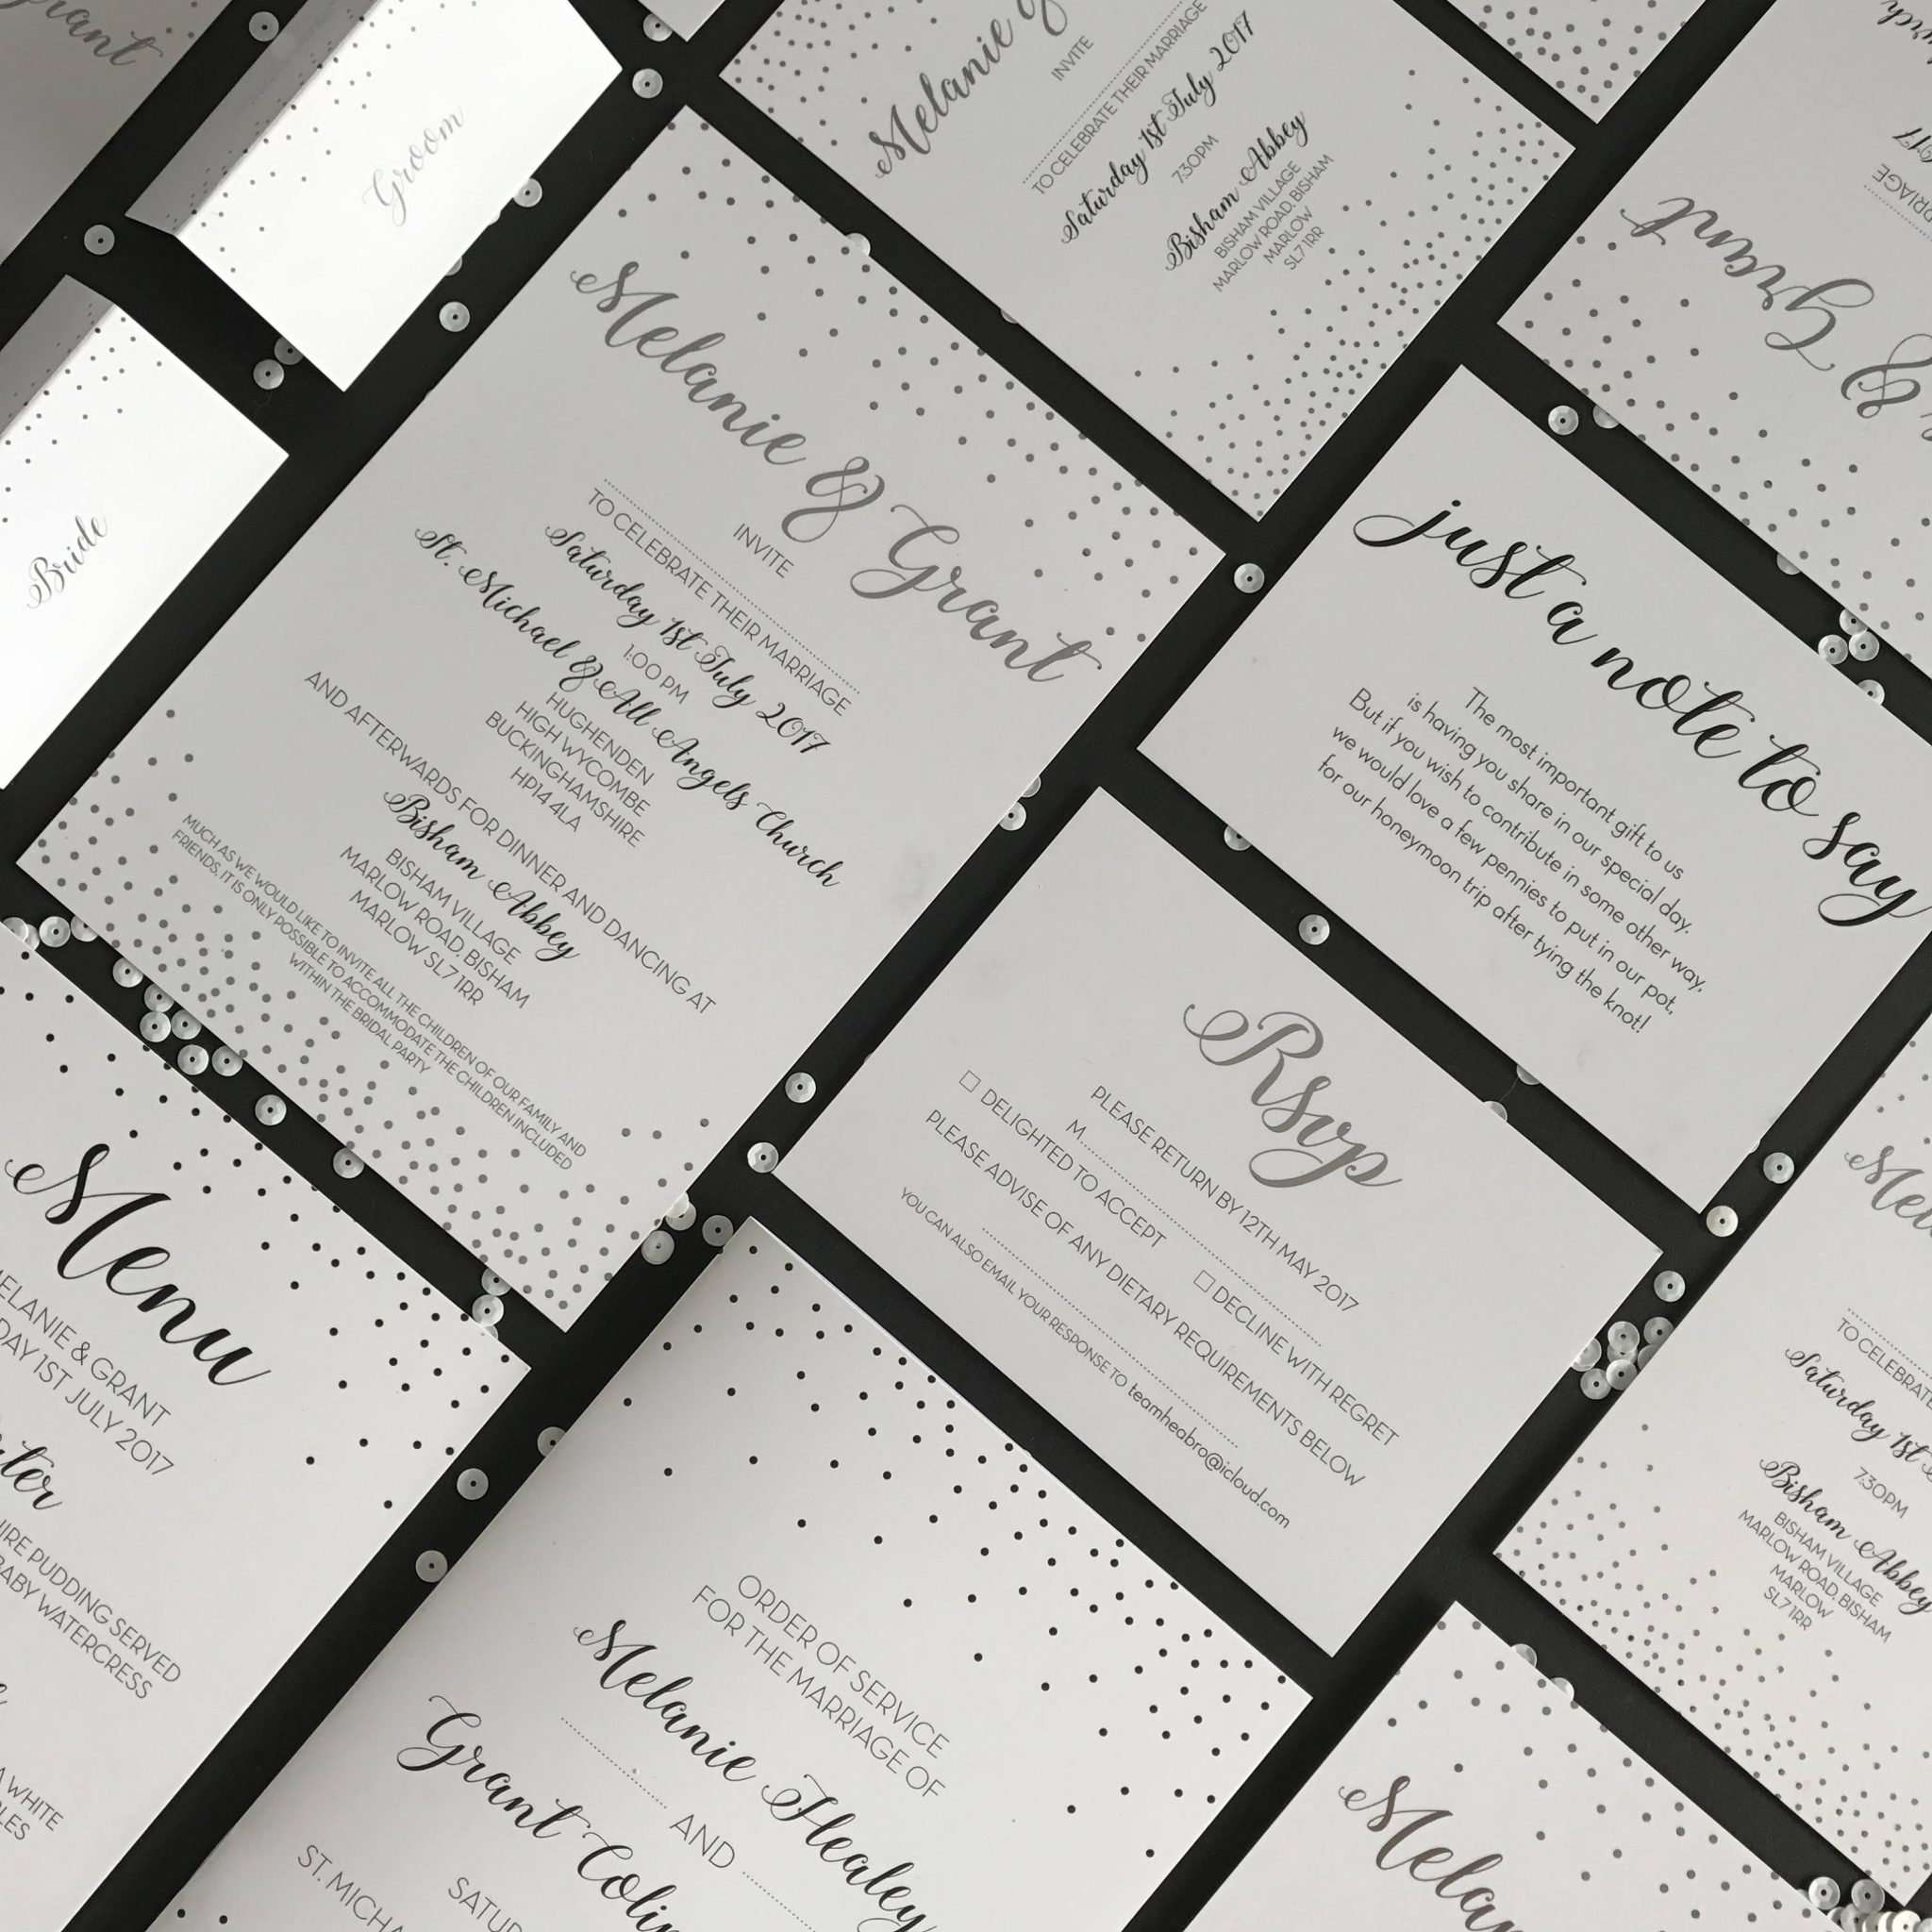 Grant
Groom
Bride
Melanie
INVITE
TO CELEBRATE THEIR MARRIAGE
Saturday 1st July 2017
7.30PM
Bisham Abbey
BISHAM VILLAGE
MARLOW ROAD, BISHAM
MARLOW
SL7 1RR
& Grant
Melanie & Grant
INVITE
TO CELEBRATE THEIR MARRIAGE
Saturday 1st July 2017
1:00 PM
St. Michael & All Angels Church
HUGHENDEN
HIGH WYCOMBE
BUCKINGHAMSHIRE
HP14 4LA
AND AFTERWARDS FOR DINNER AND DANCING AT
Bisham Abbey
BISHAM VILLAGE
MARLOW ROAD, BISHAM
MARLOW SL7 1RR
MUCH AS WE WOULD LIKE TO INVITE ALL THE CHILDREN OF OUR FAMILY AND
FRIENDS, IT IS ONLY POSSIBLE TO ACCOMMODATE THE CHILDREN INCLUDED
WITHIN THE BRIDAL PARTY
just a note to say
The most important gift to us
is having you share in our special day.
But if you wish to contribute in some other way,
we would love a few pennies to put in our pot,
for our honeymoon trip after tying the knot!
Rsvp
PLEASE RETURN BY 12TH MAY 2017
M
DELIGHTED TO ACCEPT DECLINE WITH REGRET
PLEASE ADVISE OF ANY DIETARY REQUIREMENTS BELOW
YOU CAN ALSO EMAIL YOUR RESPONSE TO teamheabro@icloud.com
Menu
MELANIE & GRANT
1ST JULY 2017
PUDDING SERVED
BABY WATERCRESS
WHITE
ORDER OF SERVICE
FOR THE MARRIAGE OF
Melanie Healey
AND
Grant Colin
ST. MICHA
TO CELEBRATE
Saturday 1st
7.30PM
Bisham Abbey
BISHAM VILLAGE
MARLOW ROAD, BISHAM
MARLOW
SL7 1RR
Melan